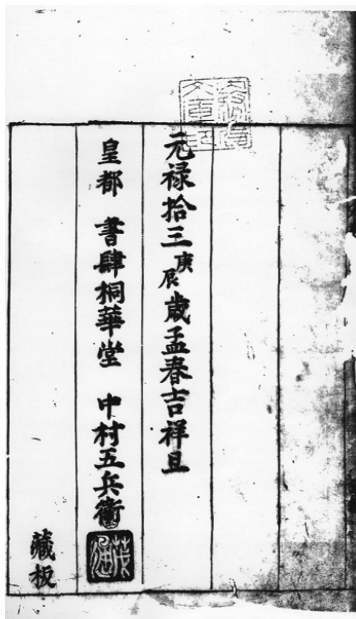 元禄拾三庚辰歳孟春吉祥旦
皇都 書肆桐華堂 中村五兵衛
藏板